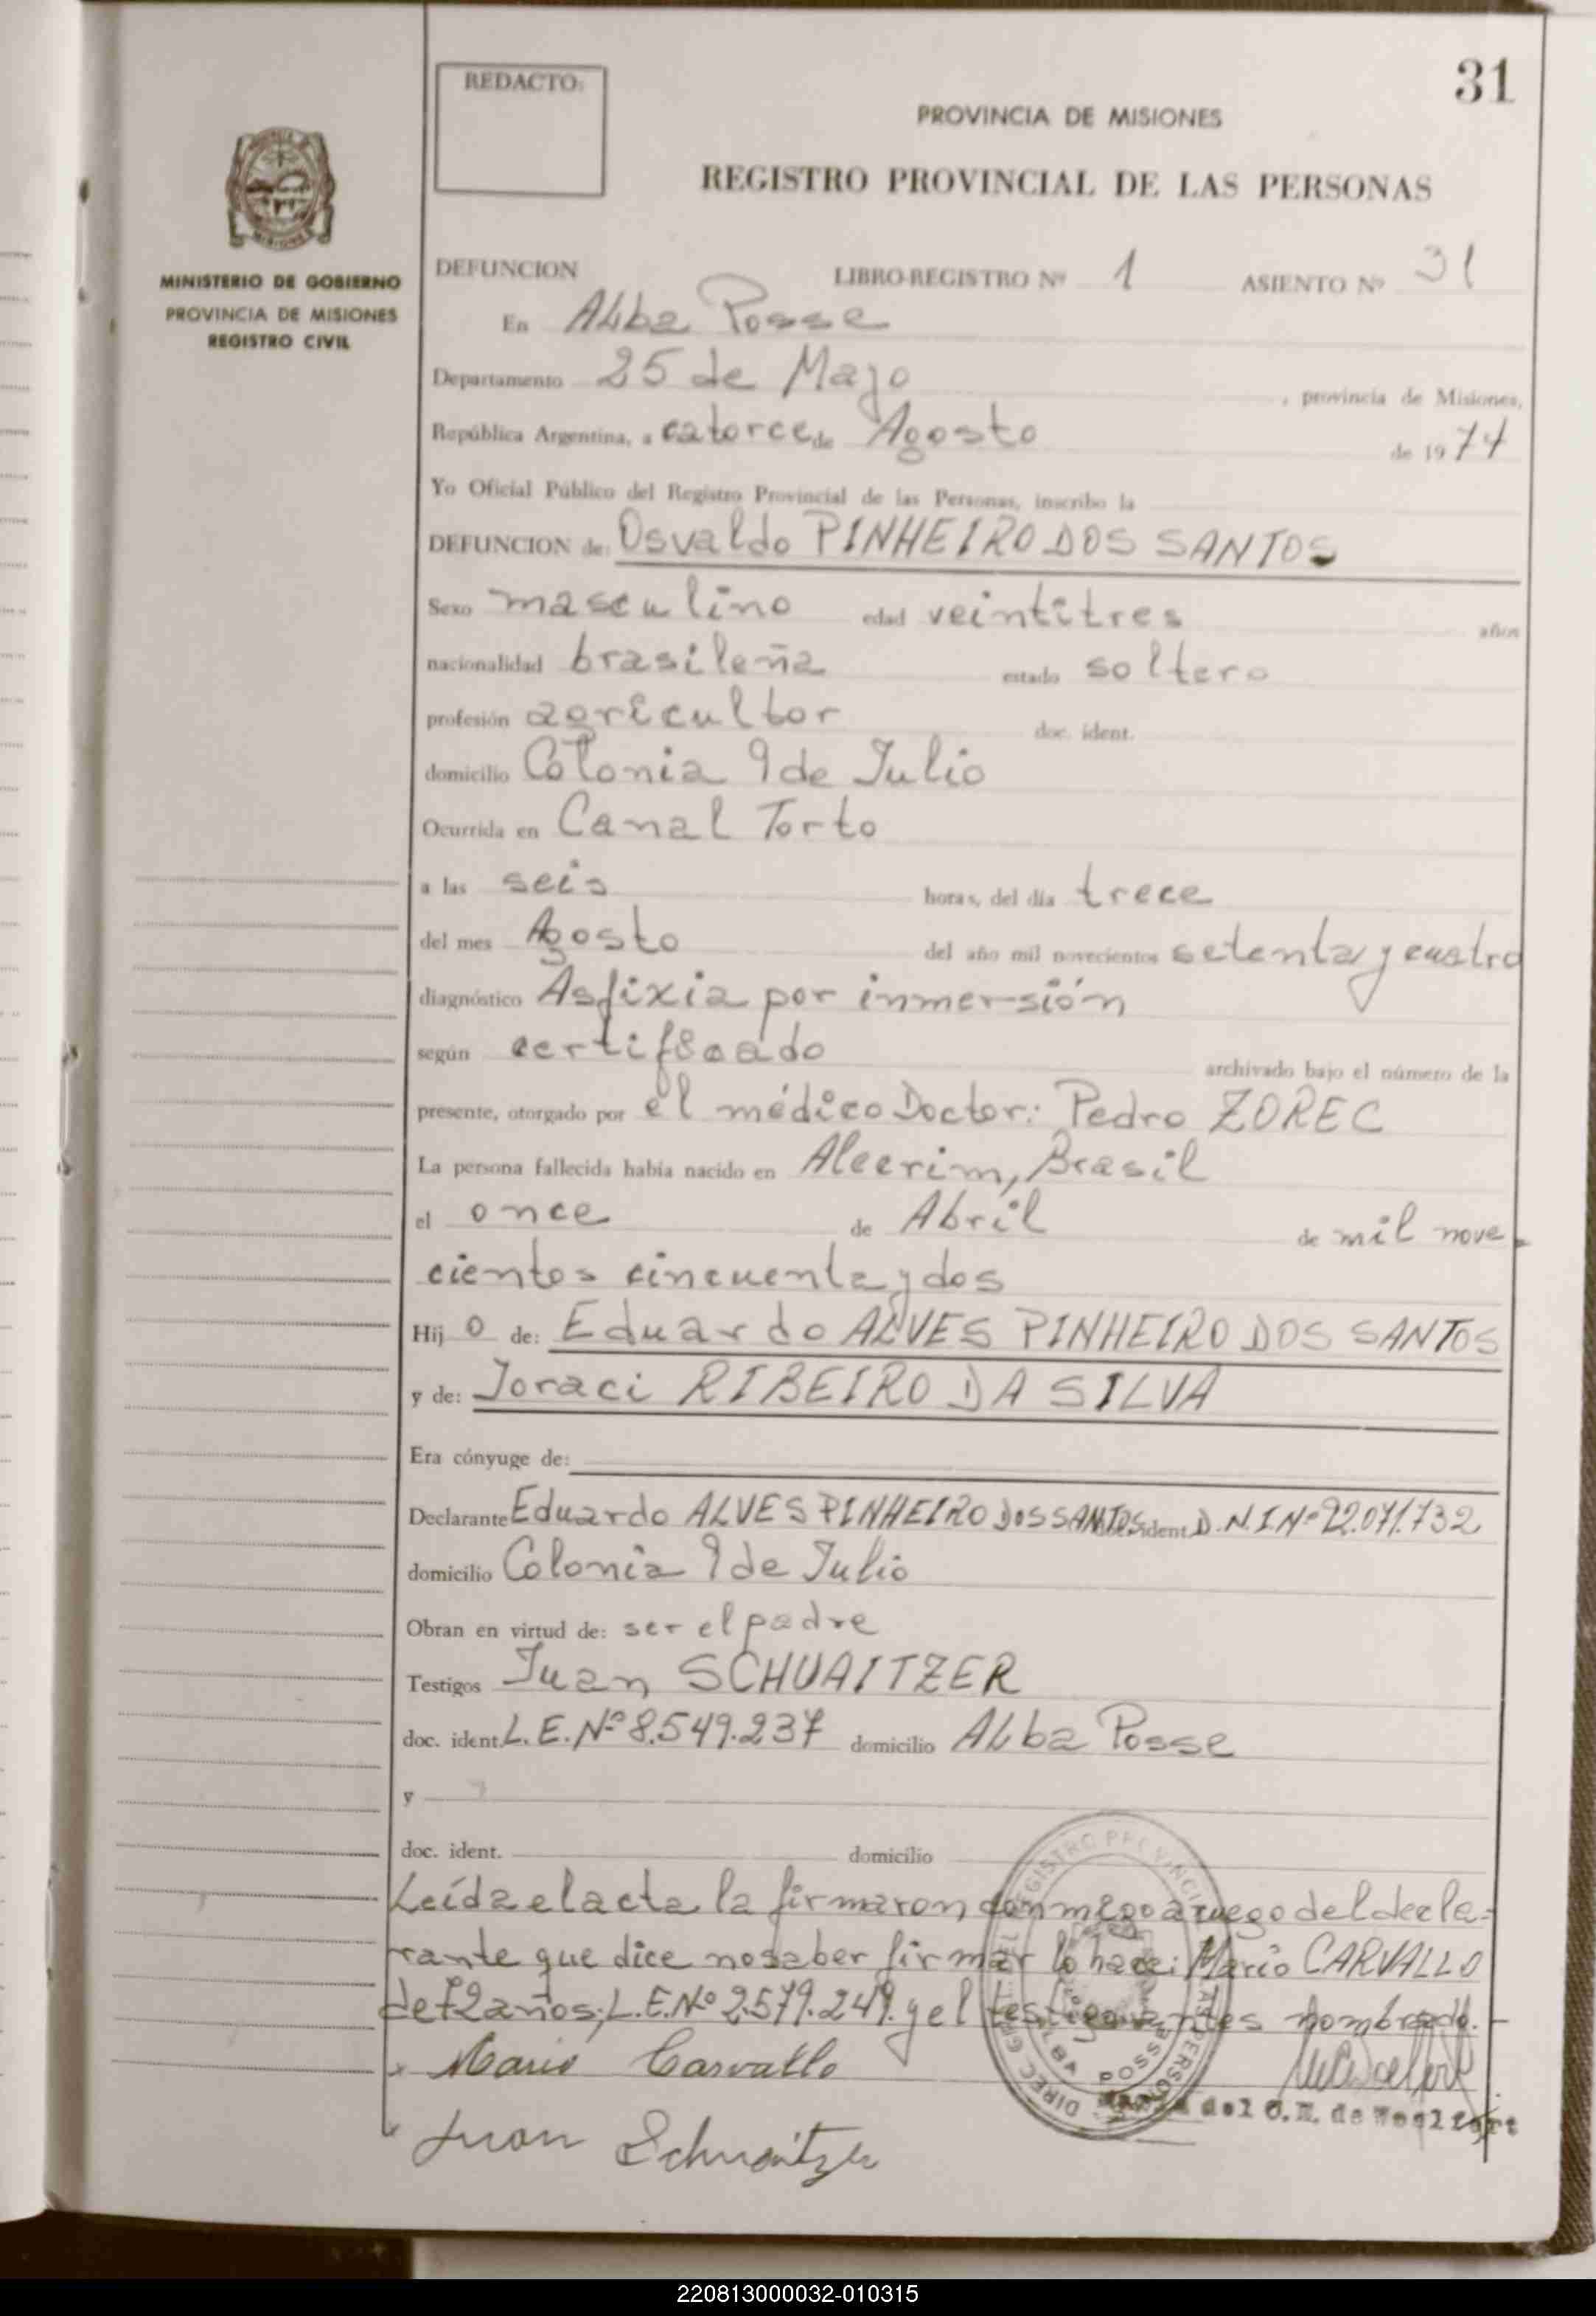 31
REDACTO:
PROVINCIA DE MISIONES
REGISTRO PROVINCIAL DE LAS PERSONAS
MINISTERIO DE GOBIERNO
PROVINCIA DE MISIONES
REGISTRO CIVIL
DEFUNCION LIBRO-REGISTRO Nº 1 ASIENTO Nº 31
En Alba Posse
Departamento 25 de Mayo, provincia de Misiones,
República Argentina, a catorce de Agosto de 1974
Yo Oficial Público del Registro Provincial de las Personas, inscribo la
DEFUNCION de: Osvaldo PINHEIRO DOS SANTOS
Sexo masculino edad veintitres años
nacionalidad brasileña estado soltero
profesión agricultor doc. ident.
domicilio Colonia 9 de Julio
Ocurrida en Canal Torto
a las seis horas, del día trece
del mes Agosto del año mil novecientos setenta y cuatro
diagnóstico Asfixia por inmersión
según certificado archivado bajo el número de la
presente, otorgado por el médico Doctor: Pedro ZOREC
La persona fallecida había nacido en Alecrim, Brasil
el once de Abril de mil nove
cientos cincuenta y dos
Hij o de: Eduardo ALVES PINHEIRO DOS SANTOS
y de: Joraci RIBEIRO DA SILVA
Era cónyuge de:
Declarante Eduardo ALVES PINHEIRO DOS SANTOS ident D.N.I.Nº 22.071.732
domicilio Colonia 9 de Julio
Obran en virtud de: ser el padre
Testigos Juan SCHUAITZER
doc. ident. L.E.Nº 8.549.237 domicilio Alba Posse
y
doc. ident. domicilio
Leída el acta la firmaron conmigo a ruego del decla-
rante que dice no saber firmar lo hace: Mario CARVALLO
de 72 años, L.E.Nº 2.579.249. y el testigo antes nombrado.
Mario Carvallo
Juan Schuaitzer
del C.E. de
220813000032-010315